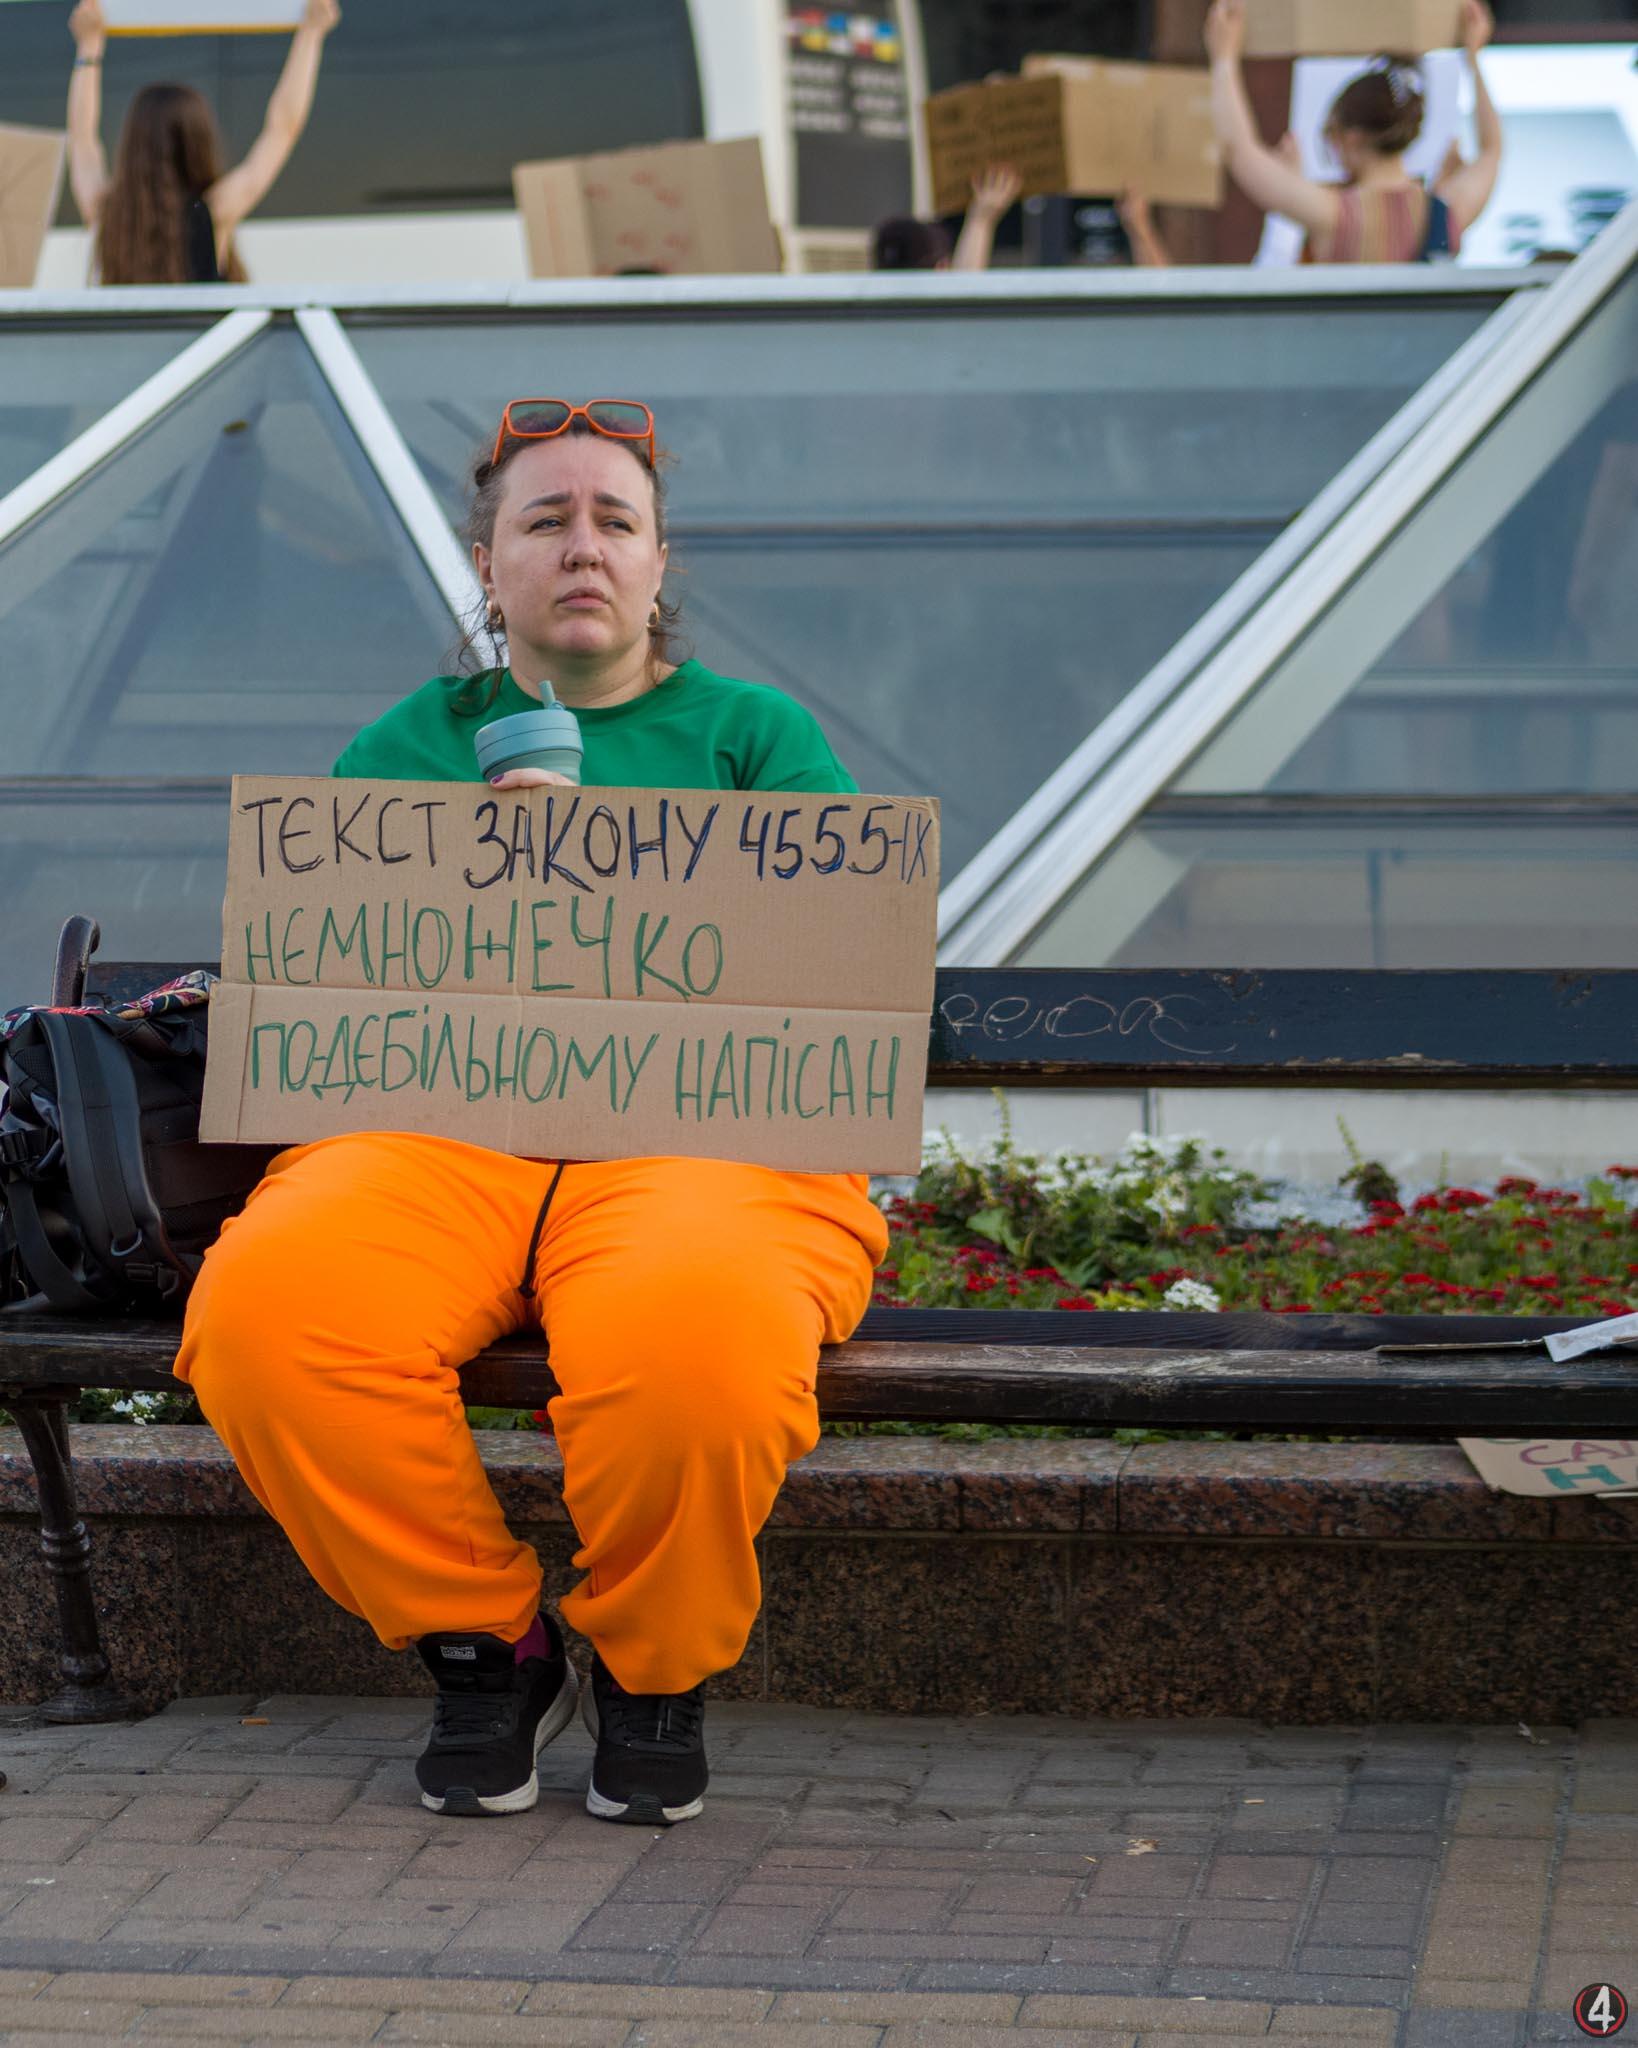 ТЄКСТ ЗАКОНУ 4555-ІХ
НЄМНОЖЕЧКО
ПО-ДЄБІЛЬНОМУ НАПІСАН
СА
Н
4